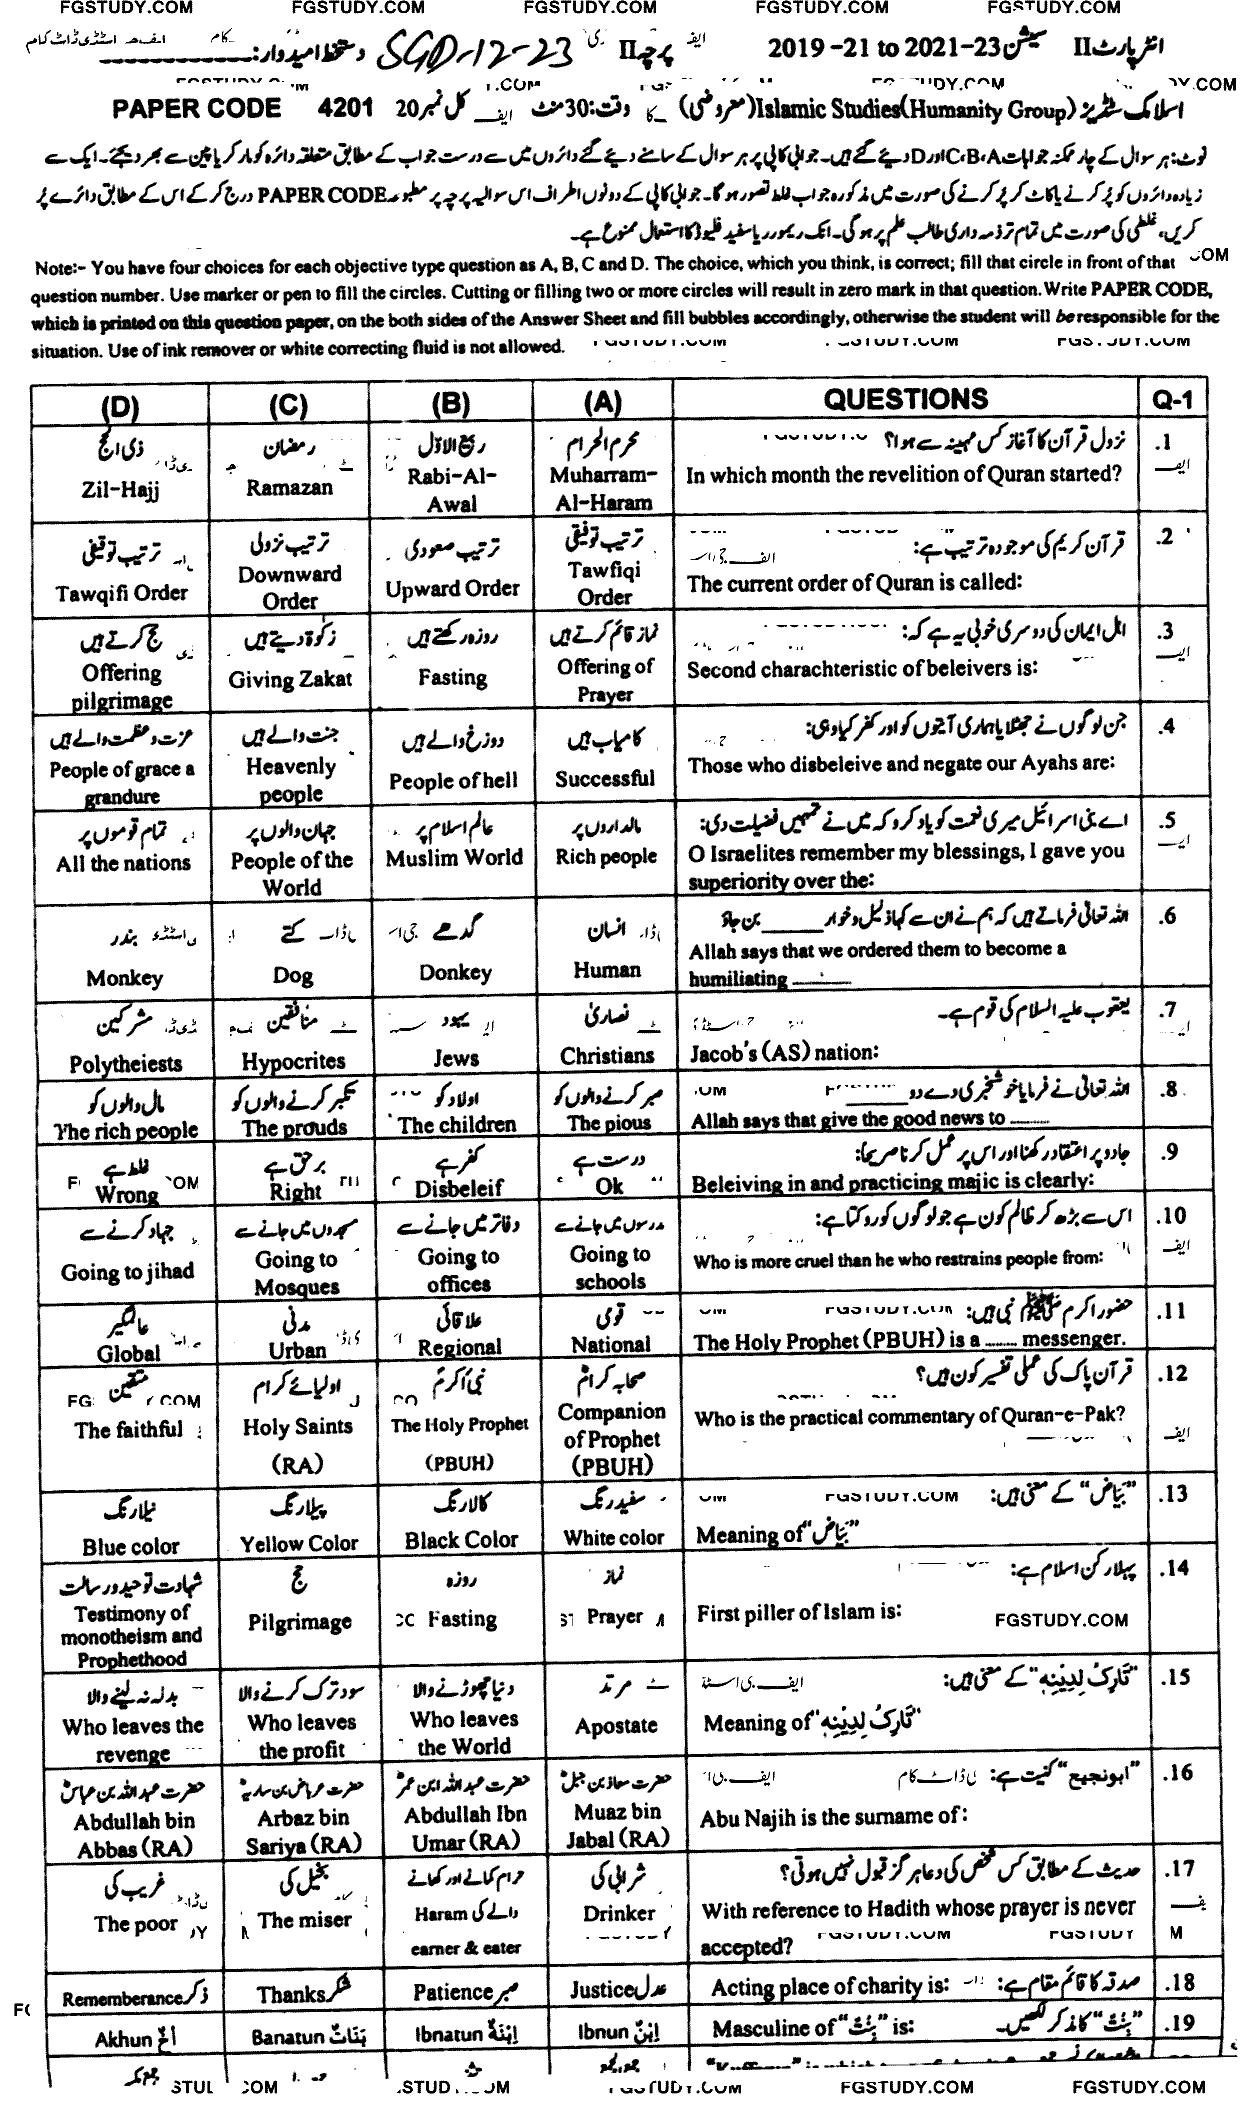 FGSTUDY.COM FGSTUDY.COM FGSTUDY.COM FGSTUDY.COM FGSTUDY.COM
انٹر پارٹ II سیشن 2019 -21 to 2021-23 پرچہ II SGD-12-23 دستخط امیدوار:
اسلامک سٹڈیز Islamic Studies(Humanity Group)(معروضی) وقت:30منٹ کل نمبر20 PAPER CODE 4201
نوٹ: ہر سوال کے چار ممکنہ جوابات C،B،A اور D دیئے گئے ہیں۔ جوابی کاپی پر ہر سوال کے سامنے دیئے گئے دائروں میں سے درست جواب کے مطابق متعلقہ دائرہ کو مارکر یا پین سے بھر دیجئے۔ ایک سے
زیادہ دائروں کو پُر کرنے یا کاٹ کر پُر کرنے کی صورت میں مذکورہ جواب غلط تصور ہو گا۔ جوابی کاپی کے دونوں اطراف اس سوالیہ پرچہ پر مطبوعہ PAPER CODE درج کر کے اس کے مطابق دائرے پُر
کریں، غلطی کی صورت میں تمام تر ذمہ داری طالب علم پر ہو گی۔ انک ریموور یا سفید فلیوڈ کا استعمال ممنوع ہے۔
Note:- You have four choices for each objective type question as A, B, C and D. The choice, which you think, is correct; fill that circle in front of that
question number. Use marker or pen to fill the circles. Cutting or filling two or more circles will result in zero mark in that question. Write PAPER CODE,
which is printed on this question paper, on the both sides of the Answer Sheet and fill bubbles accordingly, otherwise the student will be responsible for the
situation. Use of ink remover or white correcting fluid is not allowed.
(D) (C) (B) (A) QUESTIONS Q-1
ذی الحج رمضان ربیع الاوّل محرم الحرام نزول قرآن کا آغاز کس مہینہ سے ہوا؟ .1
Zil-Hajj Ramazan Rabi-Al- Muharram- In which month the revelition of Quran started?
Awal Al-Haram
ترتیب توقیفی ترتیب نزولی ترتیب صعودی ترتیب توفیقی قرآن کریم کی موجودہ ترتیب ہے: .2
Tawqifi Order Downward Upward Order Tawfiqi The current order of Quran is called:
Order Order
حج کرتے ہیں زکوٰۃ دیتے ہیں روزہ رکھتے ہیں نماز قائم کرتے ہیں اہل ایمان کی دوسری خوبی یہ ہے کہ: .3
Offering Giving Zakat Fasting Offering of Second charachteristic of beleivers is:
pilgrimage Prayer
عزت و عظمت والے ہیں جنت والے ہیں دوزخ والے ہیں کامیاب ہیں جن لوگوں نے جھٹلایا ہماری آیتوں کو اور کفر کیا وہی: .4
People of grace a Heavenly People of hell Successful Those who disbeleive and negate our Ayahs are:
grandure people
تمام قوموں پر جہان والوں پر عالم اسلام پر مالداروں پر اے بنی اسرائیل میری نعمت کو یاد کرو کہ میں نے تمہیں فضیلت دی: .5
All the nations People of the Muslim World Rich people O Israelites remember my blessings, I gave you
World superiority over the:
بندر کتے گدھے انسان اللہ تعالٰی فرماتے ہیں کہ ہم نے ان سے کہا ذلیل و خوار ______ بن جاؤ .6
Monkey Dog Donkey Human Allah says that we ordered them to become a
humiliating ______
مشرکین منافقین یہود نصاریٰ یعقوب علیہ السلام کی قوم ہے۔ .7
Polytheiests Hypocrites Jews Christians Jacob's (AS) nation:
مال والوں کو تکبر کرنے والوں کو اولاد کو صبر کرنے والوں کو اللہ تعالٰی نے فرمایا خوشخبری دے دو ______ .8
The rich people The prouds The children The pious Allah says that give the good news to ______
غلط ہے برحق ہے کفر ہے درست ہے جادو پر اعتقاد رکھنا اور اس پر عمل کرنا صریحاً: .9
Wrong Right Disbeleif Ok Beleiving in and practicing majic is clearly:
جہاد کرنے سے مسجدوں میں جانے سے دفاتر میں جانے سے مدرسوں میں جانے سے اس سے بڑھ کر ظالم کون ہے جو لوگوں کو روکتا ہے: .10
Going to jihad Going to Going to Going to Who is more cruel than he who restrains people from:
Mosques offices schools
عالمگیر مدنی علاقائی قومی حضور اکرم ﷺ نبی ہیں: .11
Global Urban Regional National The Holy Prophet (PBUH) is a ______ messenger.
متقین اولیائے کرام نبی اکرمؐ صحابہ کرامؓ قرآن پاک کی عملی تفسیر کون ہیں؟ .12
The faithful Holy Saints The Holy Prophet Companion Who is the practical commentary of Quran-e-Pak?
(RA) (PBUH) of Prophet
(PBUH)
نیلا رنگ پیلا رنگ کالا رنگ سفید رنگ "بَیَاض" کے معنی ہیں: .13
Blue color Yellow Color Black Color White color Meaning of "بَیَاض"
شہادت توحید و رسالت حج روزہ نماز پہلا رکن اسلام ہے: .14
Testimony of Pilgrimage Fasting Prayer First piller of Islam is: FGSTUDY.COM
monotheism and
Prophethood
بدلہ نہ لینے والا سود ترک کرنے والا دنیا چھوڑنے والا مرتد "تَارِکُ لِدِیْنِہٖ" کے معنی ہیں: .15
Who leaves the Who leaves Who leaves Apostate Meaning of "تَارِکُ لِدِیْنِہٖ"
revenge the profit the World
حضرت عبداللہ بن عباسؓ حضرت عرباض بن ساریہؓ حضرت عبداللہ ابن عمرؓ حضرت معاذ بن جبلؓ "ابو نجیع" کنیت ہے: .16
Abdullah bin Arbaz bin Abdullah Ibn Muaz bin Abu Najih is the surname of:
Abbas (RA) Sariya (RA) Umar (RA) Jabal (RA)
غریب کی بخیل کی حرام کمانے اور کھانے والے کی شرابی کی حدیث کے مطابق کس شخص کی دعا ہرگز قبول نہیں ہوتی؟ .17
The poor The miser Haram Drinker With reference to Hadith whose prayer is never
earner & eater accepted?
Rememberance ذکر Thanks شکر Patience صبر Justice عدل Acting place of charity is: صدقہ کا قائم مقام ہے: .18
Akhun اَخٌ Banatun بَنَاتٌ Ibnatun اِبْنَةٌ Ibnun اِبْنٌ Masculine of "بِنْتٌ" is: "بِنْتٌ" کا مذکر لکھیں۔ .19
FGSTUDY.COM FGSTUDY.COM FGSTUDY.COM